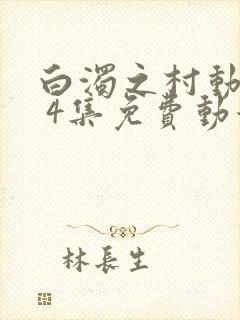 白濁之村動
4集免費動
林長生